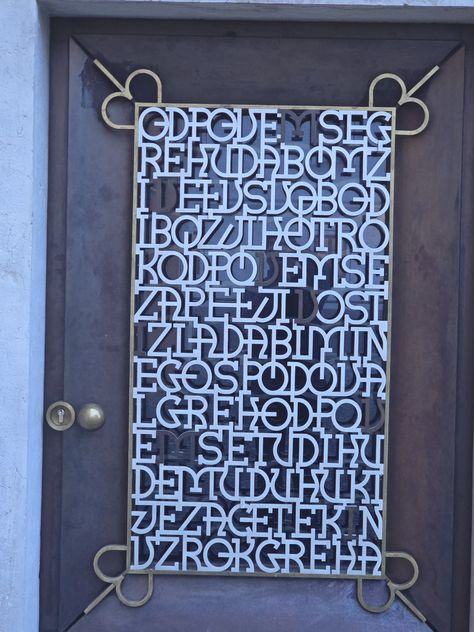 ODPOVEMSEG
REHUDABOMZ
IVELVSVOBOD
IBOZJIHOTRO
KODPOVEMSE
ZAPELJIVOST
IZLADABIMIN
EGOSPODOVA
LGREHODPOV
EMSETUDIHU
DEMUDUHUKI
JEZACETEKIN
VZROKGREHA